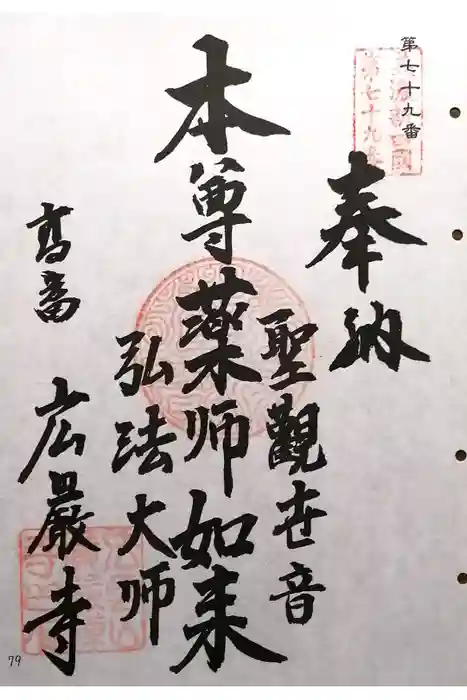 第七十九番
奉納
聖觀世音
本尊薬师如来
弘法大师
高畓
広嚴寺
79